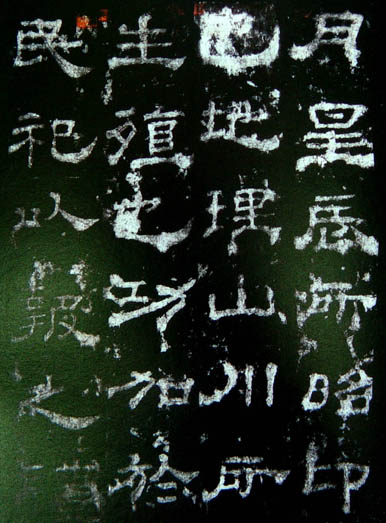 月星辰所昭卬
也地理山川所
生殖也功加於
民祀以報之禮